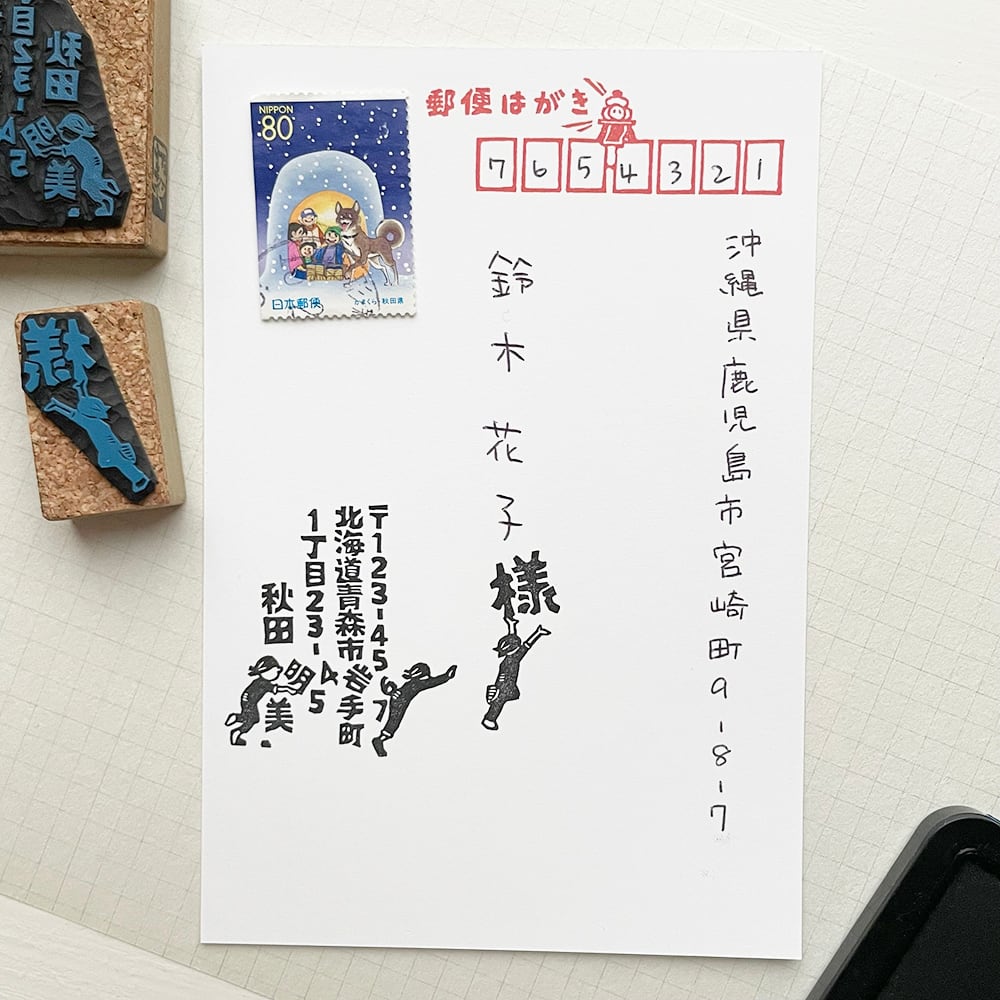 郵便はがき
7654321
沖縄県鹿児島市宮崎町9-8-7
鈴木花子様
〒123-4567
北海道青森市岩手町
1丁目23-45
秋田明美
NIPPON
80
日本郵便
かまくら・秋田県
秋田
明美
目23-45
様